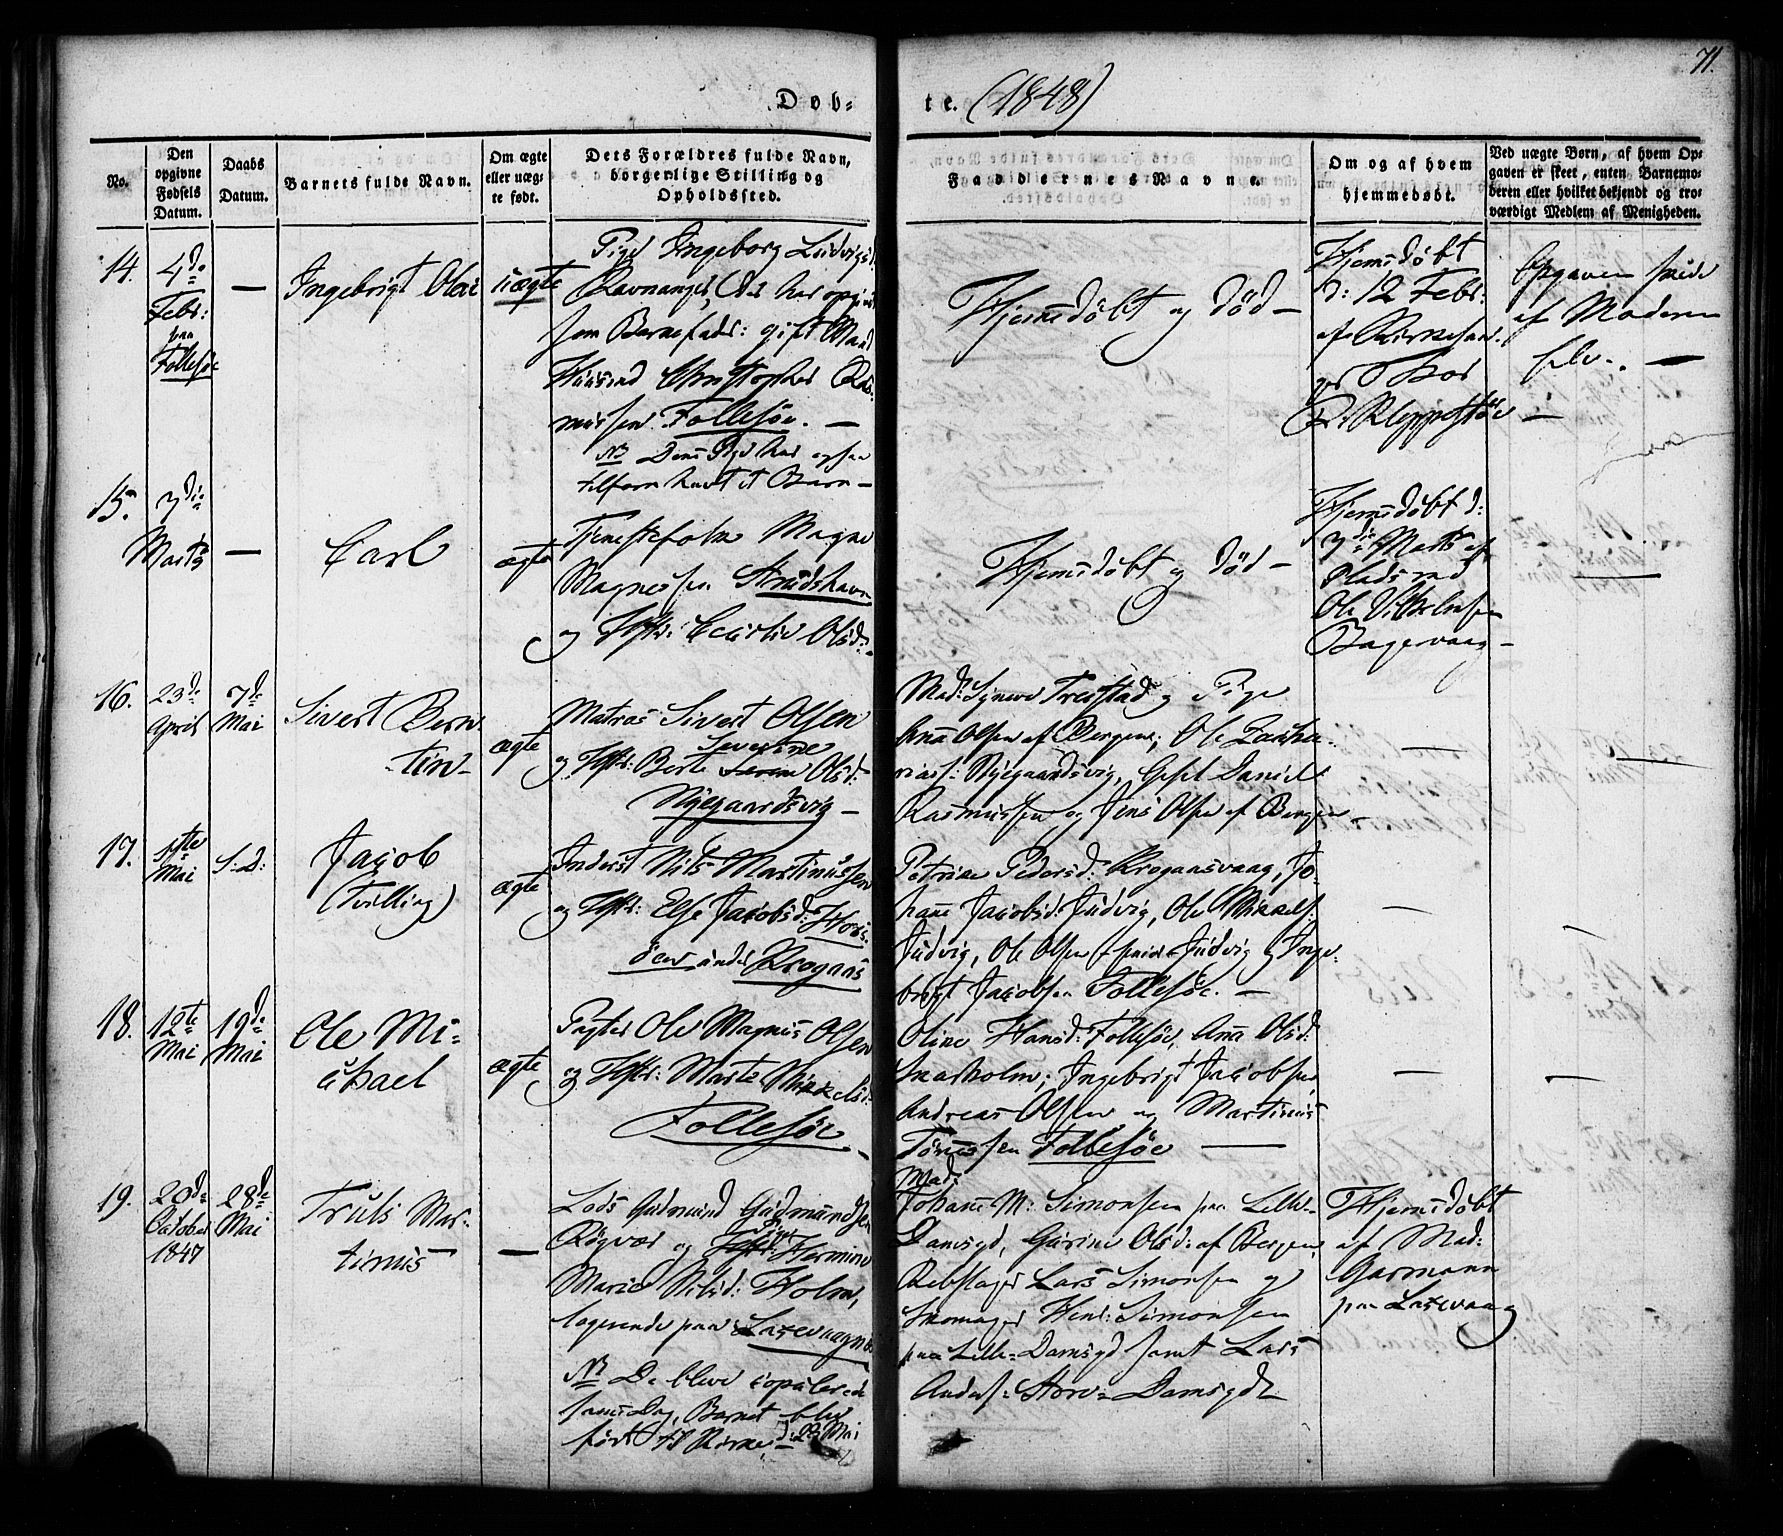 71.
Døb=
te. (1848)
No.
Den opgivne Fødsels Datum.
Daabs Datum.
Barnets fulde Navn.
Om ægte eller uægte født.
Dets Forældres fulde Navn, borgerlige Stilling og Opholdssted.
Faddernes Navne.
Om og af hvem hjemmedøbt.
Ved uægte Børn, af hvem Opgaven er skeet, enten Barnemoderen eller hvilket bekjendt og troværdigt Medlem af Menigheden.
14.
4de
Febr:
paa
Follesøe
—
Ingebrigt Olai
uægte
Pige Ingeborg Ludvigsd:
Ravnanger, (der har opgivet
som Barnefader: gift Mand
Huusmand Christopher Ras-
mussen Follesøe. —
NB Denne Pige har ogsaa
tilforn havt et Barn —
Hjemmedøbt og død —
Hjemmedøbt
d: 12 Febr:
af Kirkesan-
ger Thor
Kleppestøe
Opgaven skede
af Moderen
selv. —
15.
7de
Marts
—
Carl
ægte
Tjenestekarl Magne
Magnessen Strudshavn
og Hstr: Olsd:
Hjemmedøbt og død —
Hjemmedøbt d:
7de Marts af
Pladsmand
Ole Vilhelmsen
Bagervaag —
16.
23de
April
7de
Mai
Sivert Bern-
tin
ægte
Matros Sivert Olsen
og Hstr: Berte Severine Olsd:
Nyegaardsvig —
Mad: Synneve Trestad og Pige
Anna Olsen af Bergen; Ole Zacha-
riass: Nyegaardsvig, Daniel
Rasmussen og Jens Olsen af Bergen —
17.
1ste
Mai
S. D:
Jacob
(Tvilling)
ægte
Inderst Nils Martinussen
og Hstr: Else Jacobsd:
under Krogaas
Petrine Pedersd: Krogaasvaag, Jo-
hanne Jacobsd: Judvig, Ole Mikkels:
Judvig, Ole Olsen Judvig og Inge-
brigt Jacobsen Follesøe. —
18.
12te
Mai
19de
Mai
Ole Mi-
chael
ægte
Pagter Ole Magnus Olsen
og Hstr: Marte Mikkelsd:
Follesøe
Oline Hansd: Follesøe, Anna Olsd:
Ingebrigt Jacobsen,
Andreas Olsen og Martinus
Tønnessen Follesøe
19.
20de
October
1847
28de
Mai
Truls Mar-
tinus
—
Lods Gudmund Gudmundsen
og Hermine
Marie Nilsd: Holm,
logerende paa Laxevaagnes
NB De bleve copulerede
samme Dag, Barnet blev
ført til Kirke d: 28 Mai
Mad:
Johanne M: Simonsen paa Lille
Damsgd, Gurine Olsd: af Bergen
Rebslager Lars Simonsen og
Skomager Simonsen
paa Lille-Damsgd samt Lars
Anders: Store-Damsgd
Hjemmedøbt
af Mad:
Garmann
paa Laxevaag